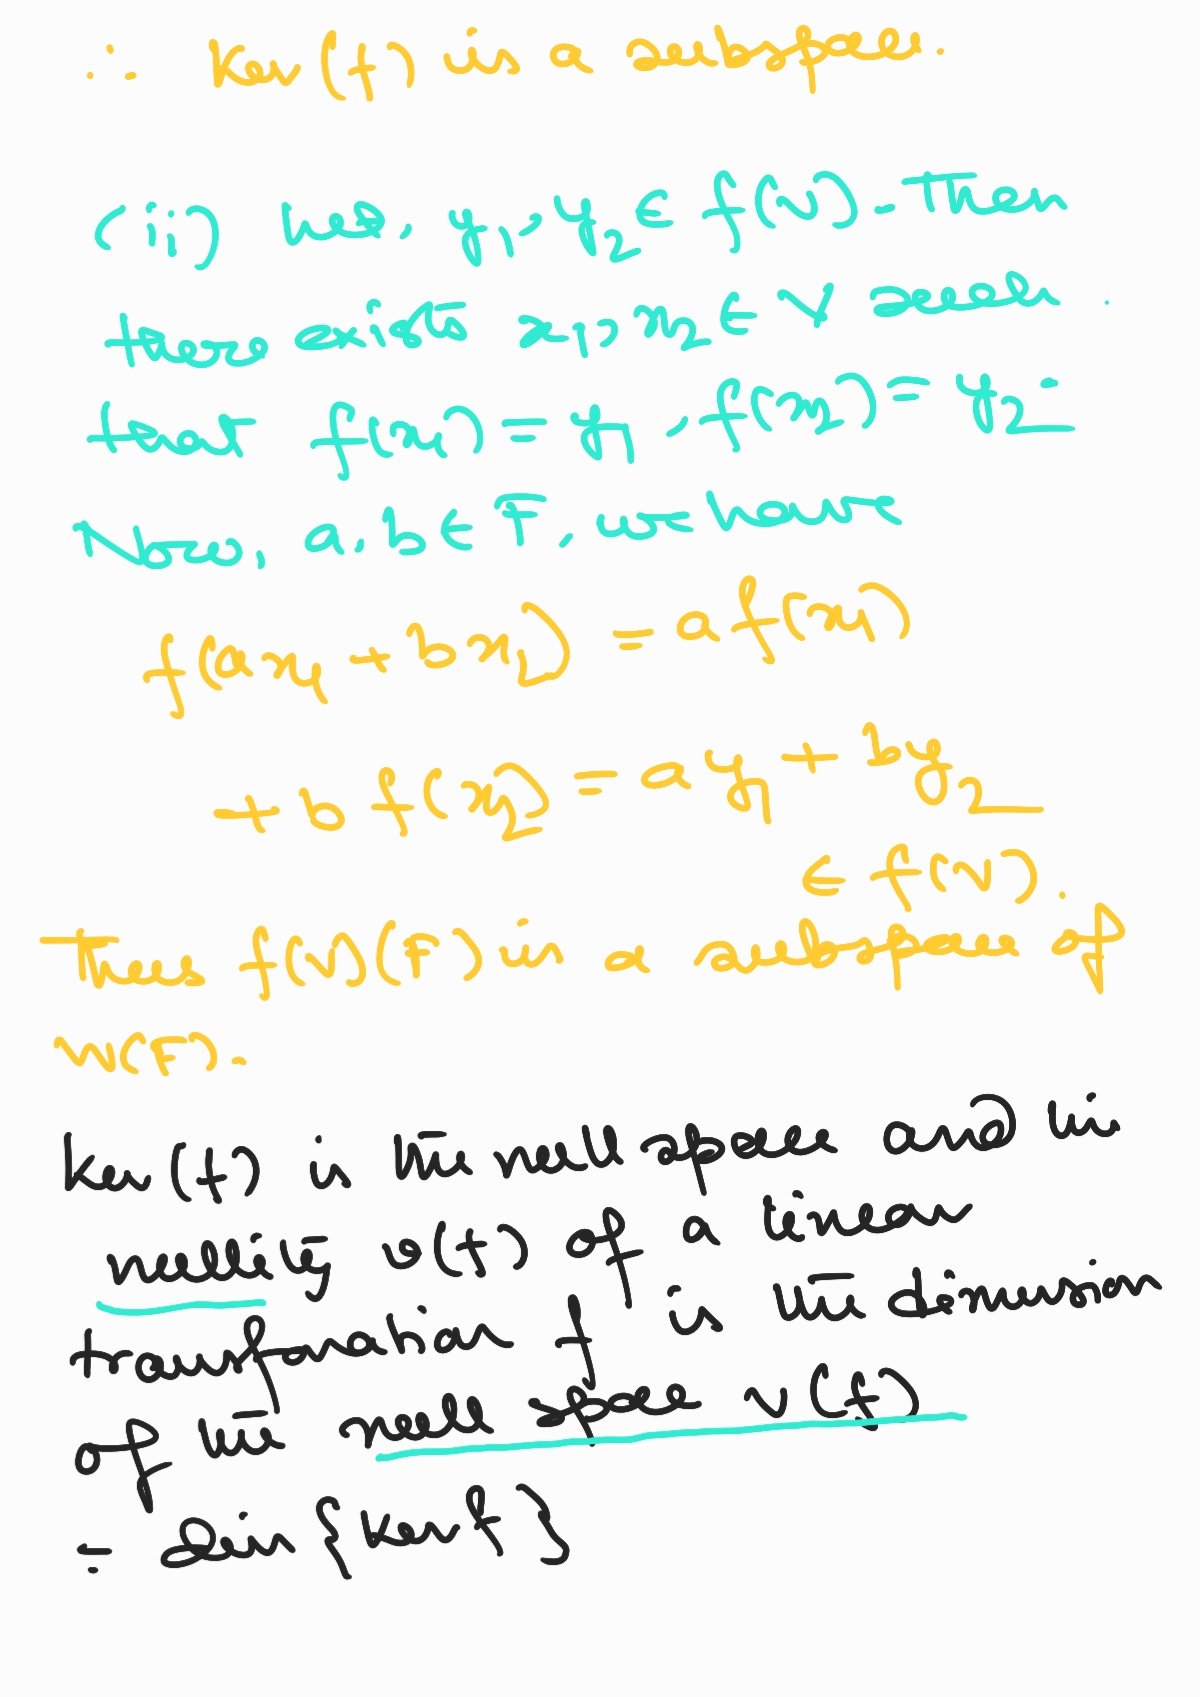 ∴ Ker (f) is a subspace.
(ii) Let, y₁, y₂ ∈ f(V). Then
there exists x₁, x₂ ∈ V such
that f(x₁) = y₁, f(x₂) = y₂.
Now, a, b ∈ F, we have
f(ax₁ + bx₂) = a f(x₁)
+ b f(x₂) = a y₁ + b y₂
∈ f(V).
Thus f(V)(F) is a subspace of
W(F).
Ker (f) is the null space and the
nullity ν(f) of a linear
transformation f is the dimension
of the null space ν(f)
= dim {Ker f}